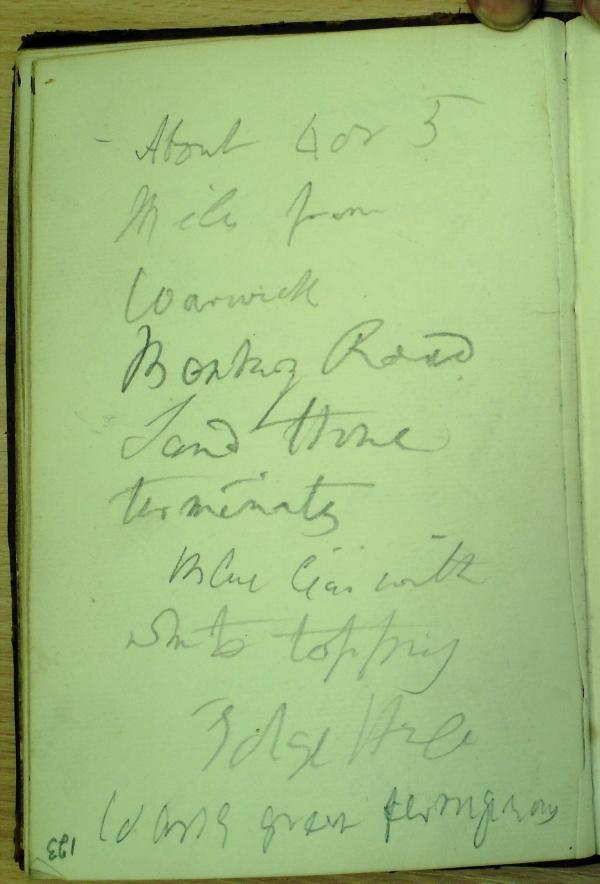 - About 4 or 5
Miles from
Warwick
Banbury Road
Sand Stone
terminates
Blue Lias with
white topping
Edge Hill
green ferruginous
123